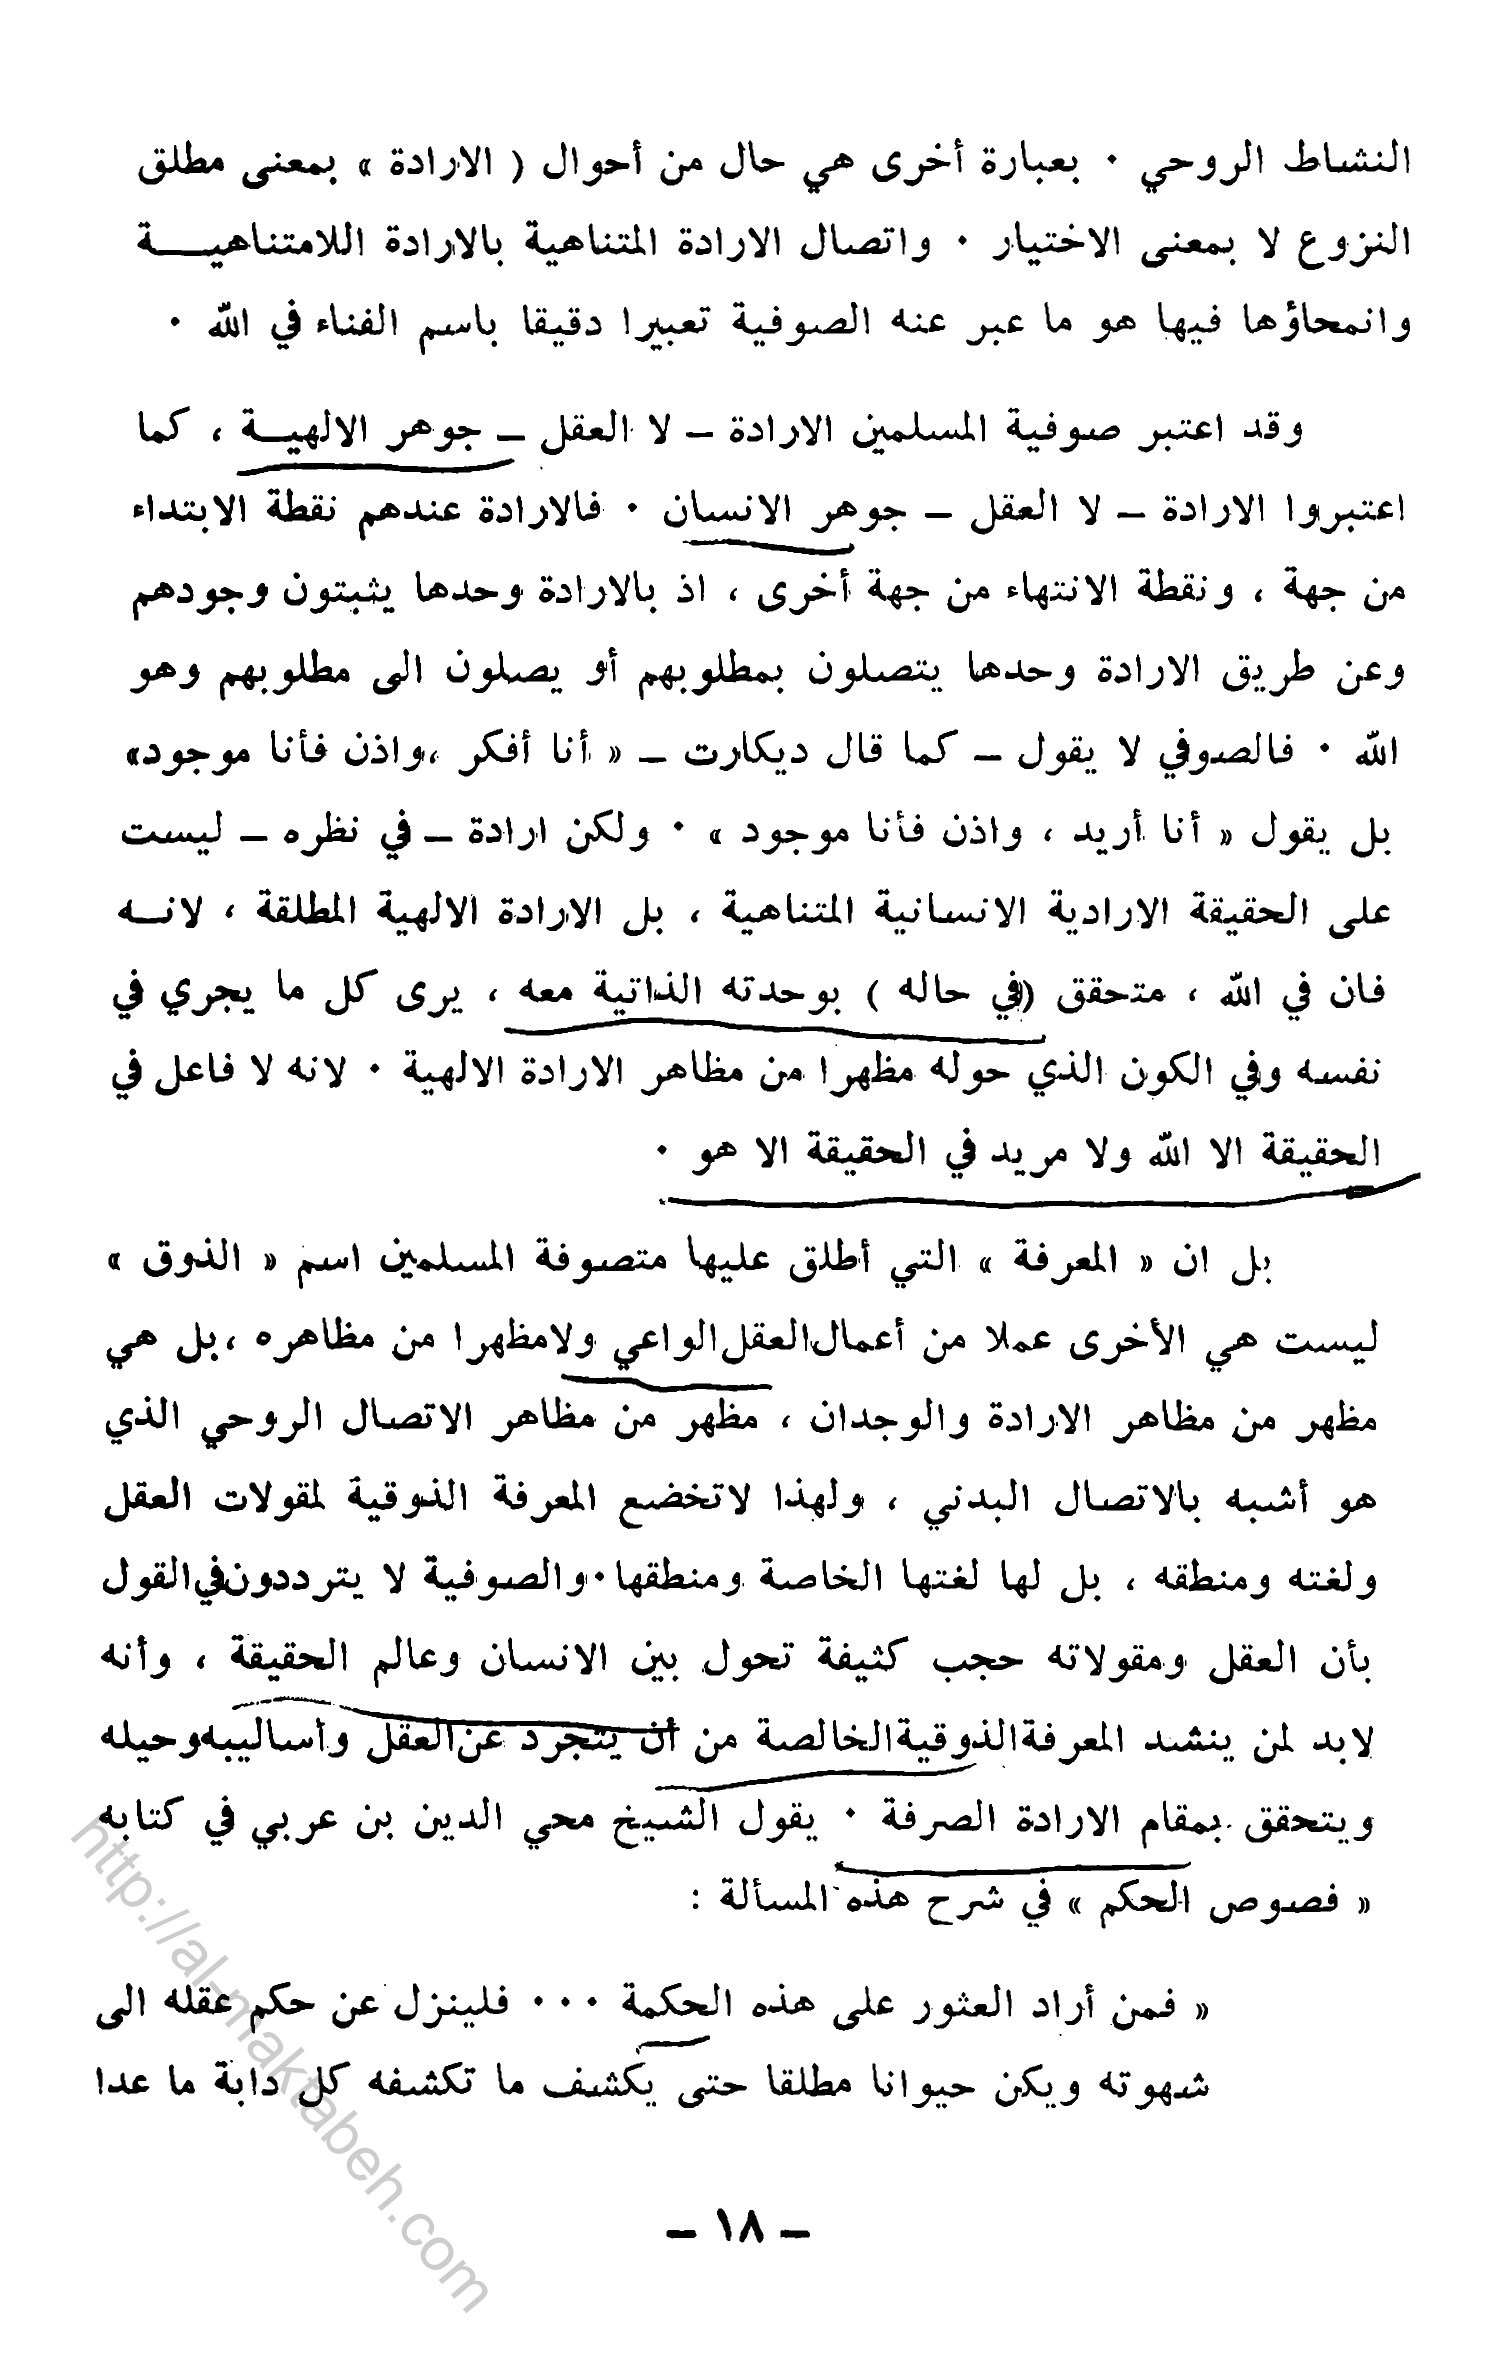 النشاط الروحي . بعبارة أخرى هي حال من أحوال ( الارادة » بمعنى مطلق
النزوع لا بمعنى الاختيار . واتصال الارادة المتناهية بالارادة اللامتناهيــة
وانمحاؤها فيها هو ما عبر عنه الصوفية تعبيرا دقيقا باسم الفناء في الله .
وقد اعتبر صوفية المسلمين الارادة – لا العقل – جوهر الالهيــة ، كما
اعتبروا الارادة – لا العقل – جوهر الانسان . فالارادة عندهم نقطة الابتداء
من جهة ، ونقطة الانتهاء من جهة أخرى ، اذ بالارادة وحدها يثبتون وجودهم
وعن طريق الارادة وحدها يتصلون بمطلوبهم أو يصلون الى مطلوبهم وهو
الله . فالصوفي لا يقول – كما قال ديكارت – « أنا أفكر ،واذن فأنا موجود»
بل يقول « أنا أريد ، واذن فأنا موجود » . ولكن ارادة – في نظره – ليست
على الحقيقة الارادية الانسانية المتناهية ، بل الارادة الالهية المطلقة ، لانــه
فان في الله ، متحقق (في حاله ) بوحدته الذاتية معه ، يرى كل ما يجري في
نفسه وفي الكون الذي حوله مظهرا من مظاهر الارادة الالهية . لانه لا فاعل في
الحقيقة الا الله ولا مريد في الحقيقة الا هو .
بل ان « المعرفة » التي أطلق عليها متصوفة المسلمين اسم « الذوق »
ليست هي الأخرى عملا من أعمال العقل الواعي ولامظهرا من مظاهره ،بل هي
مظهر من مظاهر الارادة والوجدان ، مظهر من مظاهر الاتصال الروحي الذي
هو أشبه بالاتصال البدني ، ولهذا لاتخضع المعرفة الذوقية لمقولات العقل
ولغته ومنطقه ، بل لها لغتها الخاصة ومنطقها.والصوفية لا يترددون في القول
بأن العقل ومقولاته حجب كثيفة تحول بين الانسان وعالم الحقيقة ، وأنه
لابد لمن ينشد المعرفة الذوقية الخالصة من أن يتجرد عن العقل وأساليبه وحيله
ويتحقق بمقام الارادة الصرفة . يقول الشيخ محي الدين بن عربي في كتابه
« فصوص الحكم » في شرح هذه المسألة :
« فمن أراد العثور على هذه الحكمة ... فلينزل عن حكم عقله الى
شهوته ويكن حيوانا مطلقا حتى يكشف ما تكشفه كل دابة ما عدا
– ١٨ –
http://al-maktabeh.com